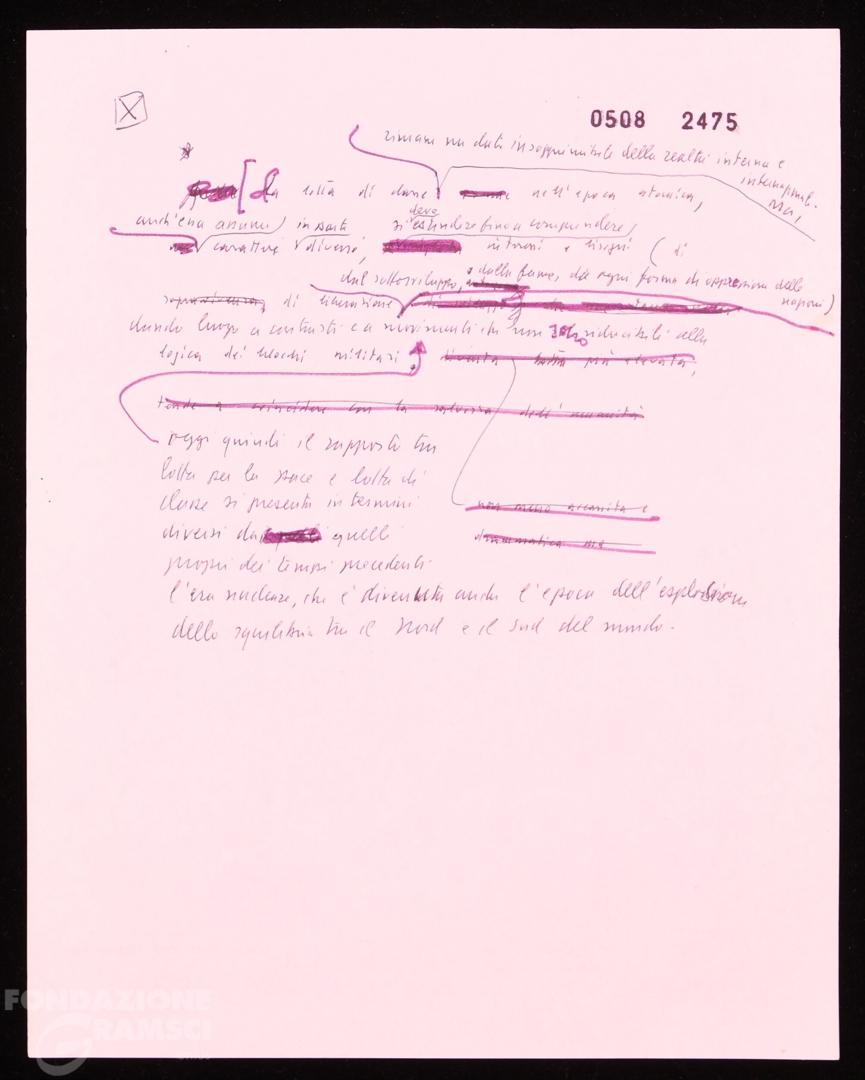 X
0508 2475
rimane un dato insopprimibile della realtà interna e
internazionale.
Ma,
La lotta di classe nell'epoca atomica,
deve
anch'essa assume in parte si estendere fino a comprendere,
caratteri diversi, interessi e bisogni (di
dal sottosviluppo, e dalla fame, da ogni forma di oppressione delle
nazioni)
sopravvivenza, di liberazione
dando luogo a contrasti e a movimenti che non sono riducibili alla
logica dei blocchi militari. diventa più elevata,
tende a coincidere con la salvezza dell'umanità
oggi quindi il rapporto tra
lotta per la pace e lotta di
classe si presenta in termini
non meno accanita e
diversi da quelli
drammatica ma
propri dei tempi precedenti
l'era nucleare, che è diventata anche l'epoca dell'esplosione
dello squilibrio tra il Nord e il Sud del mondo.
FONDAZIONE
GRAMSCI